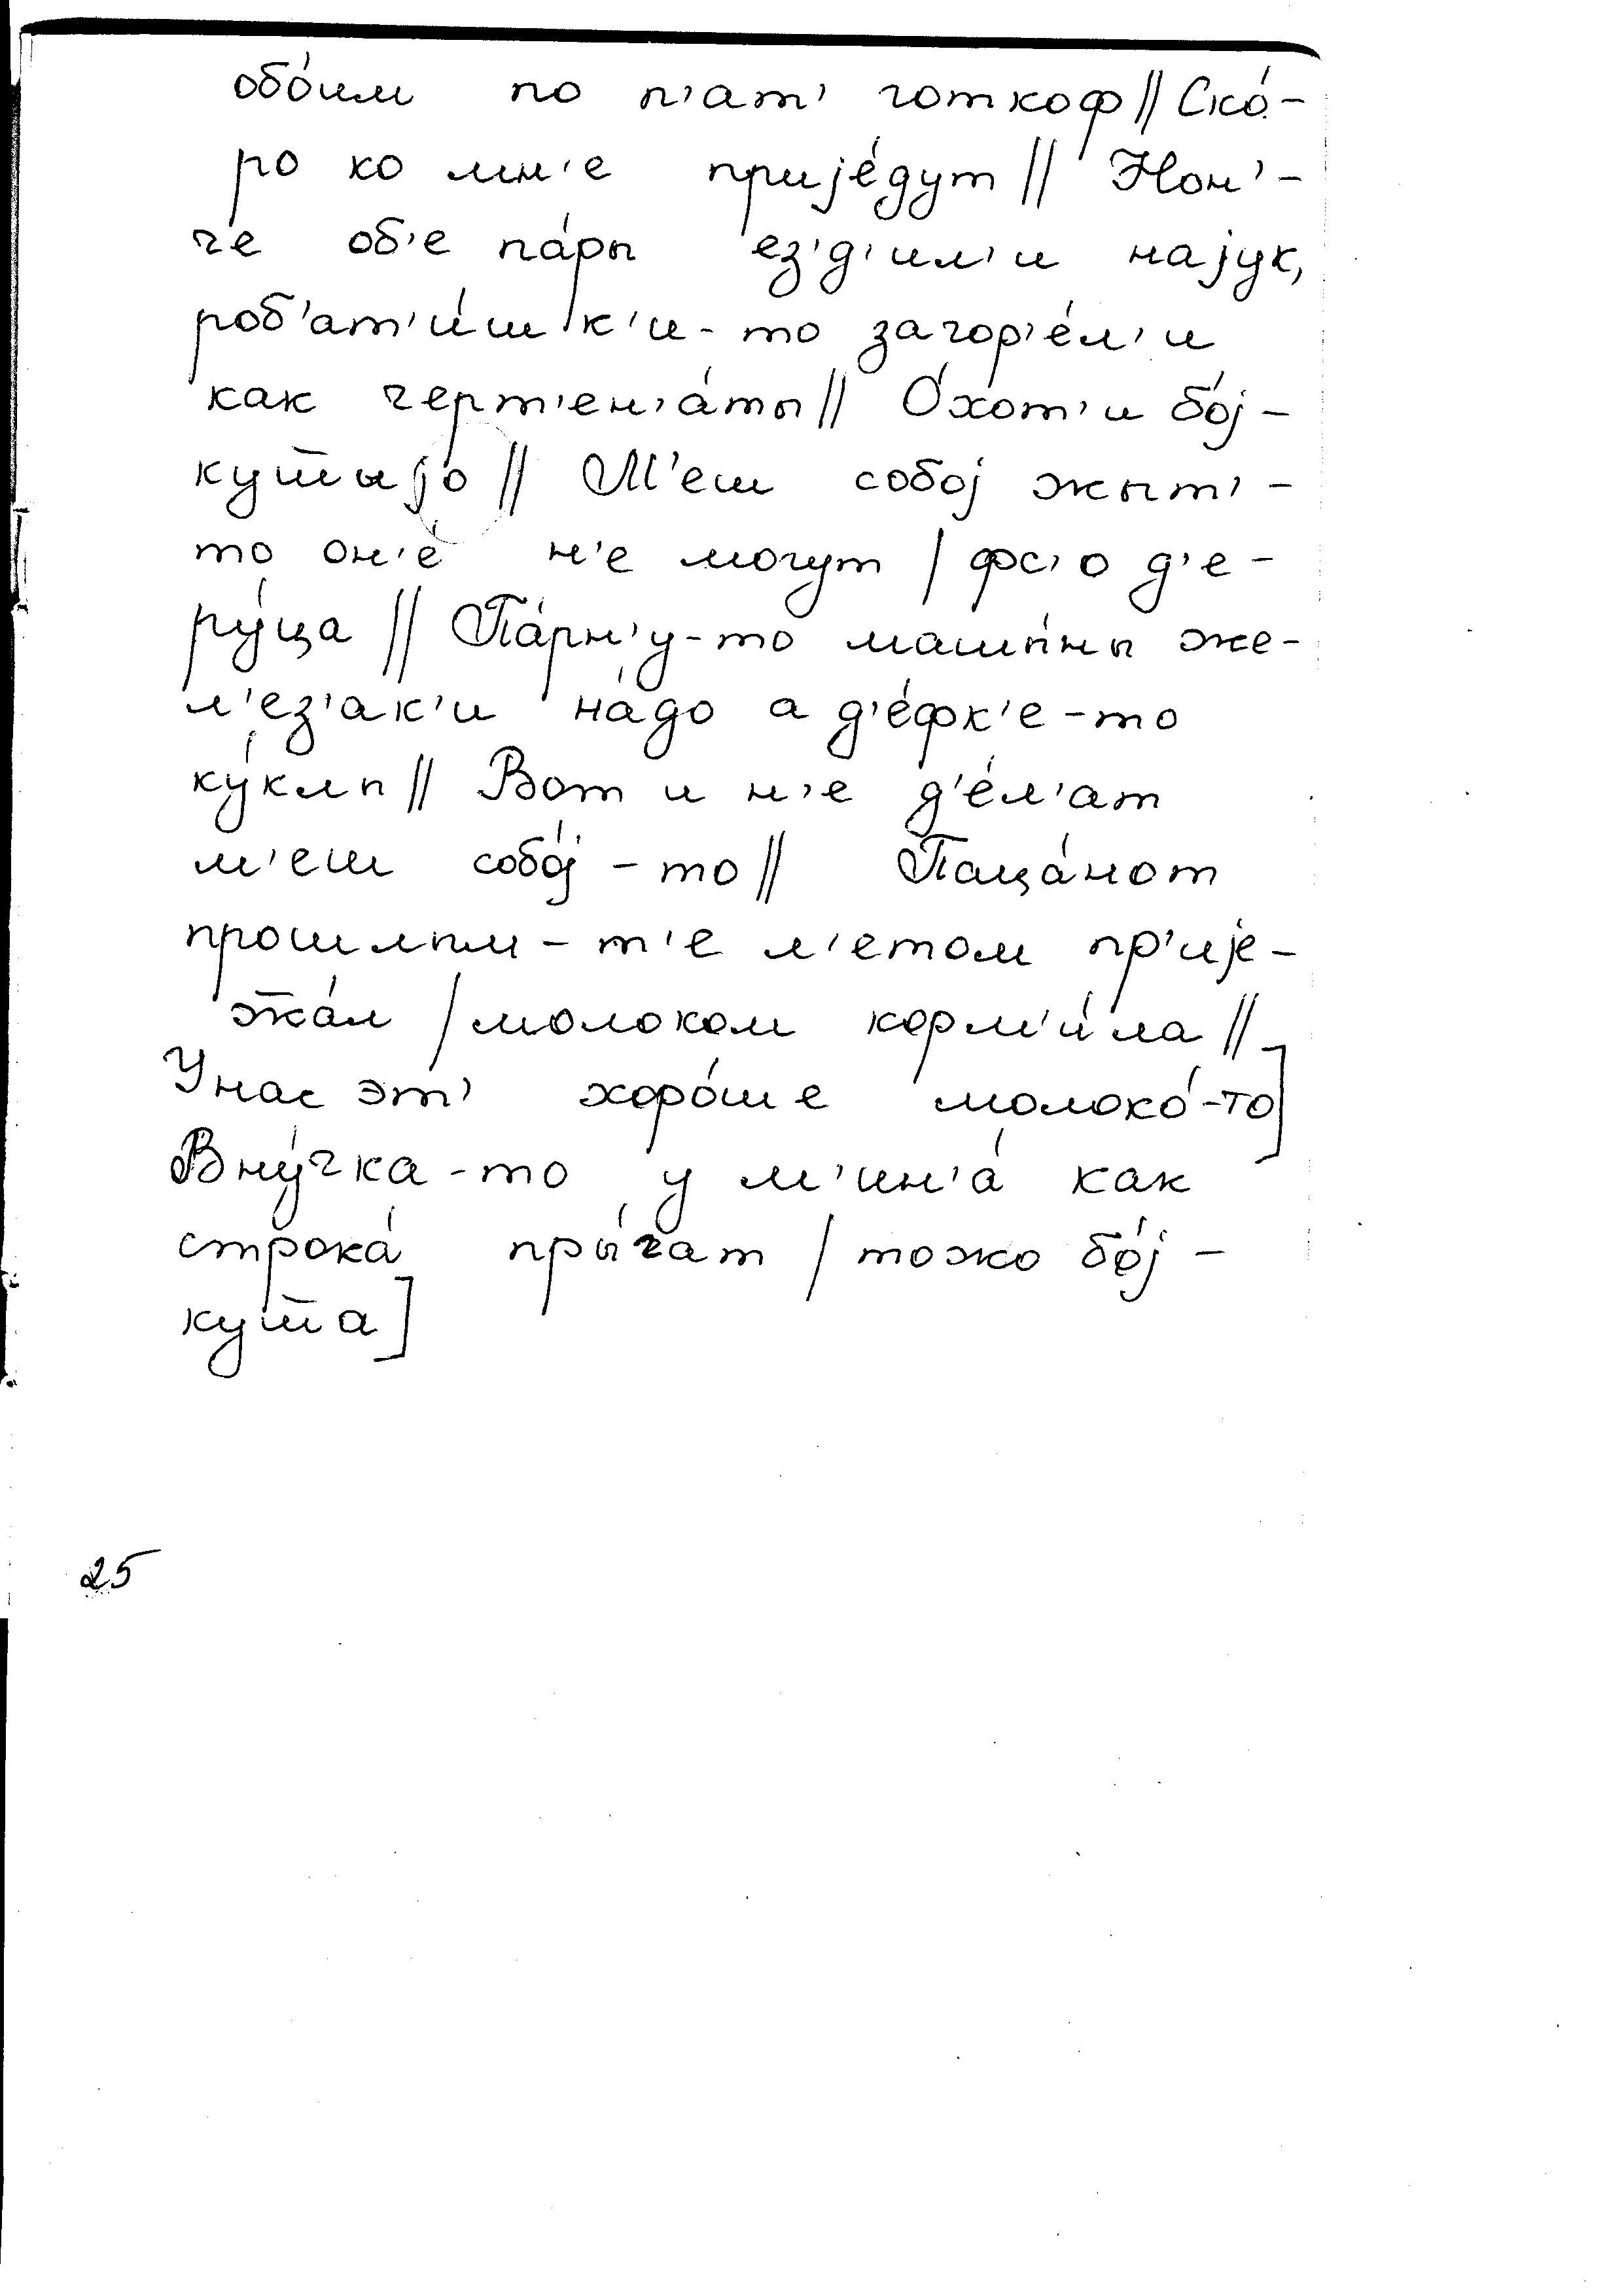 обо́им по п'ат' готкоф || Ско́-
ро ко мн'е приjе́дут || Нон'-
че об'е па́ры ез'д'ил'и наjук,
роб'ат'и́шк'и-то загор'е́л'и
как черт'ен'а́ты || О́хот'и бо́j-
куш̄ыjо || М'еш собоj жыт'-
то он'е́ н'е могут | фс'о д'е-
ру́ца || Па́рн'у-то маши́ны же-
л'ез'ак'и на́до а д'е́фк'е-то
ку́клы || Вот и н'е д'е́л'ат
м'еш собо́j-то || Паца́нот
прошлым-т'е л'етом пр'иjе-
ж̄а́л | молоком корм'и́ла ||
У нас эт' хоро́ше молоко́-то]
Вну́чка-то у м'ин'а́ как
строка́ пры́гат | тожо бо́j-
куш̄а]
25